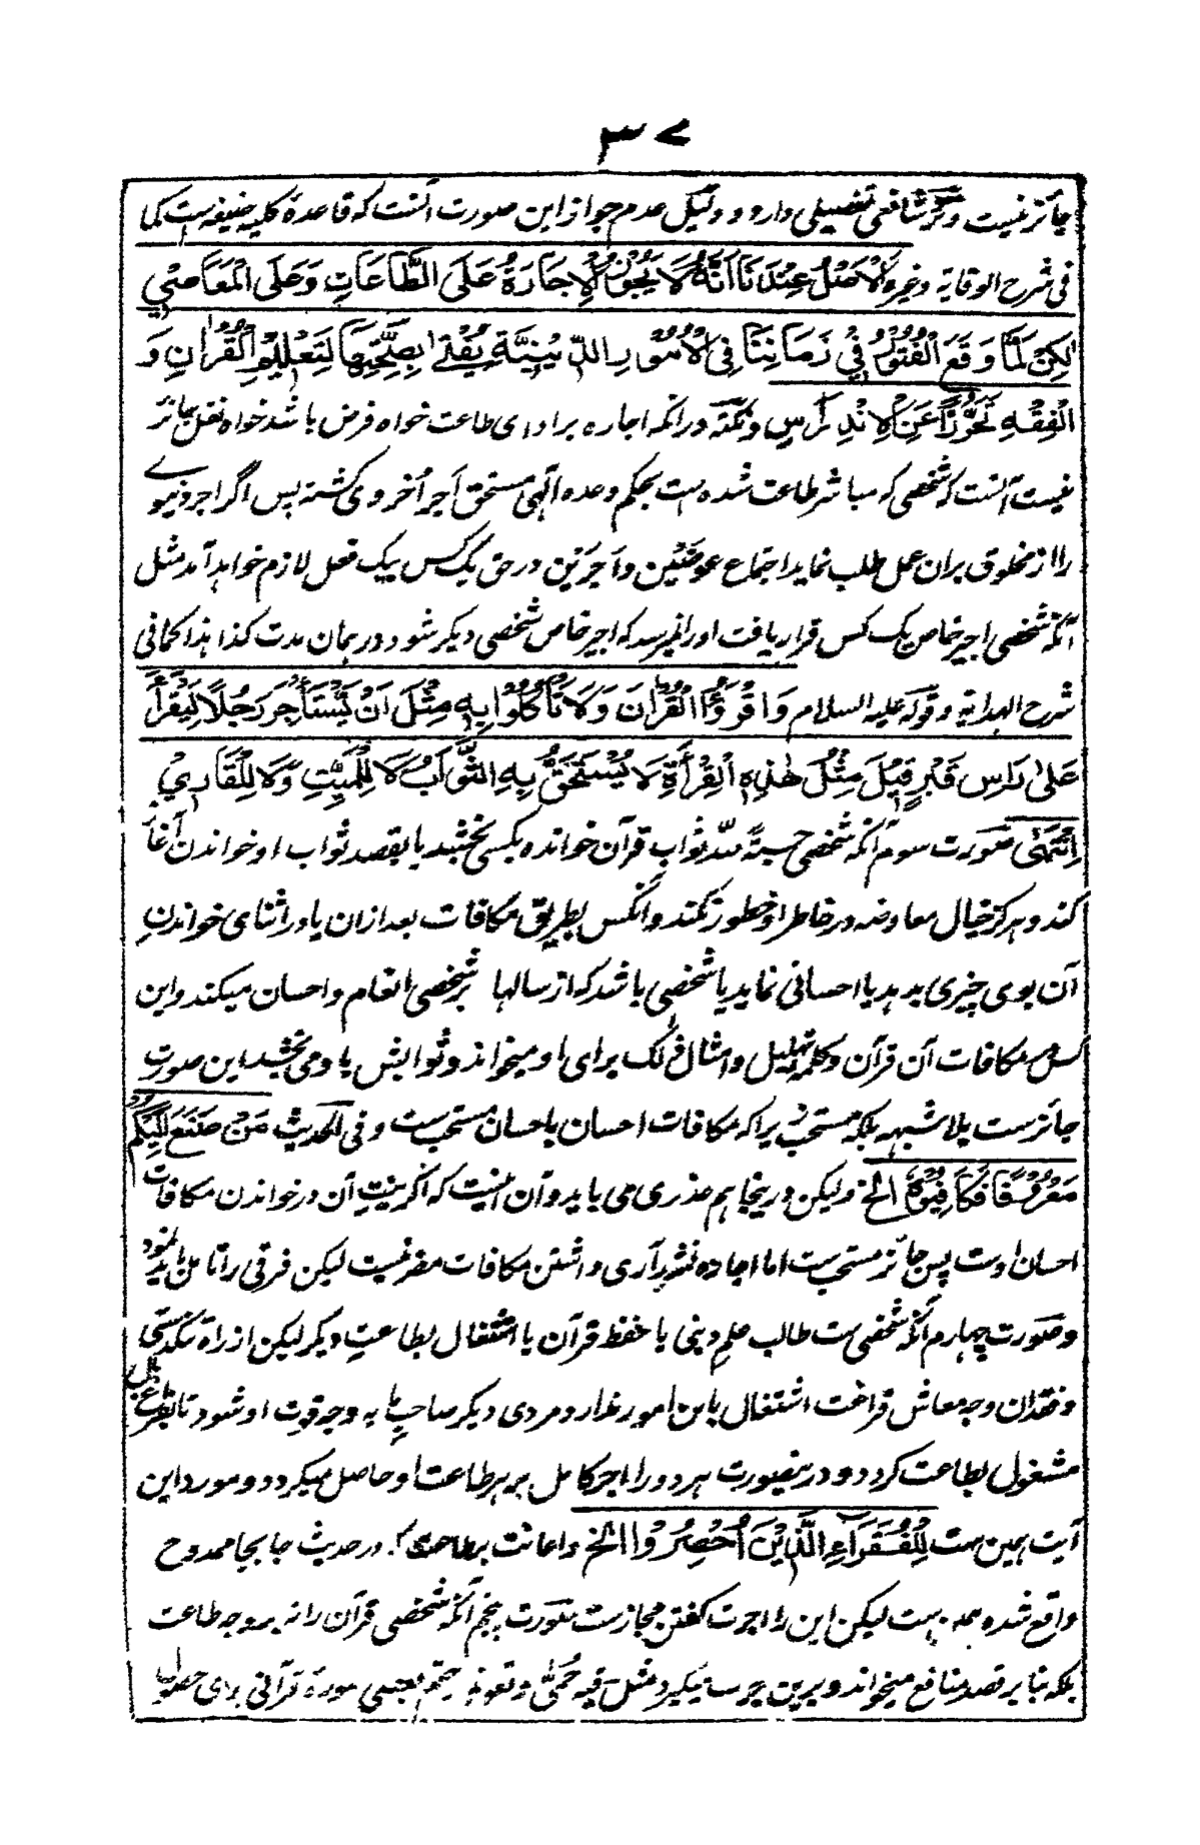 ۳۷
جائز نیست و نزد شافعی تفصیلی دارد و دلیل عدم جواز این صورت آنست که قاعدهٔ کلیه حنیفه است کما
فی شرح الوقایة وغیره اَلْاَصْلُ عِنْدَنَا اَنَّهُ لَا یَجُوْزُ الْاِجَارَةُ عَلَی الطَّاعَاتِ وَعَلَی الْمَعَاصِیْ
لٰکِنْ لَمَّا وَقَعَ الْفُتُوْرُ فِیْ زَمَانِنَا فِی الْاُمُوْرِ الدِّیْنِیَّةِ یُفْتٰی بِصِحَّتِهَا لِتَعْلِیْمِ الْقُرْاٰنِ وَ
الْفِقْهِ تَحَرُّزًا عَنِ الْاِنْدِرَاسِ و نکته در آنکه اجاره بر ادای طاعت خواه فرض باشد خواه نفل جائز
نیست آنست که شخصی که مباشر طاعت شده است بحکم وعده الٰهی مستحق اجر اُخروی گشته پس اگر اجر دنیوے
را از مخلوق بران عمل طلب نماید اجتماع عوضَین و اَجرَین در حق یک کس بیک فعل لازم خواهد آمد مثل
آنکه شخصی را اجیر خاص یک کس قرار یافت او را نمیرسد که اجیر خاص شخصی دیگر شود در همان مدت کذا هذا کما فی
شرح الهدایة و قوله علیه السلام وَاقْرَؤُا الْقُرْاٰنَ وَلَا تَأْکُلُوْا بِهٖ مِثْلَ اَنْ یَّسْتَأْجِرَ رَجُلًا لِیَقْرَأَ
عَلٰی رَاسِ قَبْرٍ قِیْلَ مِثْلُ هٰذِهِ الْقِرْأَةِ لَا یَسْتَحِقُّ بِهِ الثَّوَابُ لَا لِلْمَیِّتِ وَلَا لِلْقَارِیْ
اِنْتَهٰی صورت سوم آنکه شخصی حسبةً للّٰه ثواب قرآن خوانده بکسی بخشید یا بقصد ثواب او خواندن آغاز
کند و هرگز خیال معاوضه در خاطر او خطور نکند و آنکس بطریق مکافات بعد ازان یا در اثنای خواندنِ
آن بوی چیزی بدهد یا احسانی نماید یا شخصی باشد که از سالها بر شخصی انعام و احسان میکند و این
کس مکافات آن قرآن و کلمه تهلیل و امثال ذلک برای او میخواند و ثوابش باو می بخشد این صورت
جائزست بلا شبهه بلکه مستحب زیرا که مکافات احسان باحسان مستحب ست و فی الحدیث مَنْ صَنَعَ اِلَیْکُمْ
مَعْرُوْفًا فَکَافِیُوْهُ الخ ولیکن درینجا هم حذری می باید و آن اینست که اگر نیتِ آن در خواندن مکافات
احسان اوست پس جائز مستحب ست اما اجاره نشد آری داشتن مکافات مضر نیست لیکن فرقی را تامل باید نمود
و صورت چهارم آنکه شخصی ست طالب علم دینی یا حفظ قرآن یا اشتغال بطاعتِ دیگر لیکن از راه تنگدستی
و فقدان وجه معاش فراغت اشتغال باین امور ندارد و مردی دیگر صاحب مایه وجه قوتِ او شود تا بفراغ بال
مشغول بطاعت گردد و درینصورت هر دو را اجر کامل بر هر طاعت او حاصل میگردد و مورد این
آیت همین ست لِلْفُقَرَاءِ الَّذِیْنَ اُحْصِرُوْا الخ و اعانت بر طاعت که در حدیث جا بجا ممدوح
واقع شده همین است لیکن این را اجرت گفتن مجازست صورت پنجم آنکه شخصی قرآن را نه بر وجه طاعت
بلکه بنا بر قصد منافع میخواند و برین چیز میگیرد مثل رقیه حُمّٰی و تعویذ ختم بعضی سورهٔ قرآنی برای حصول